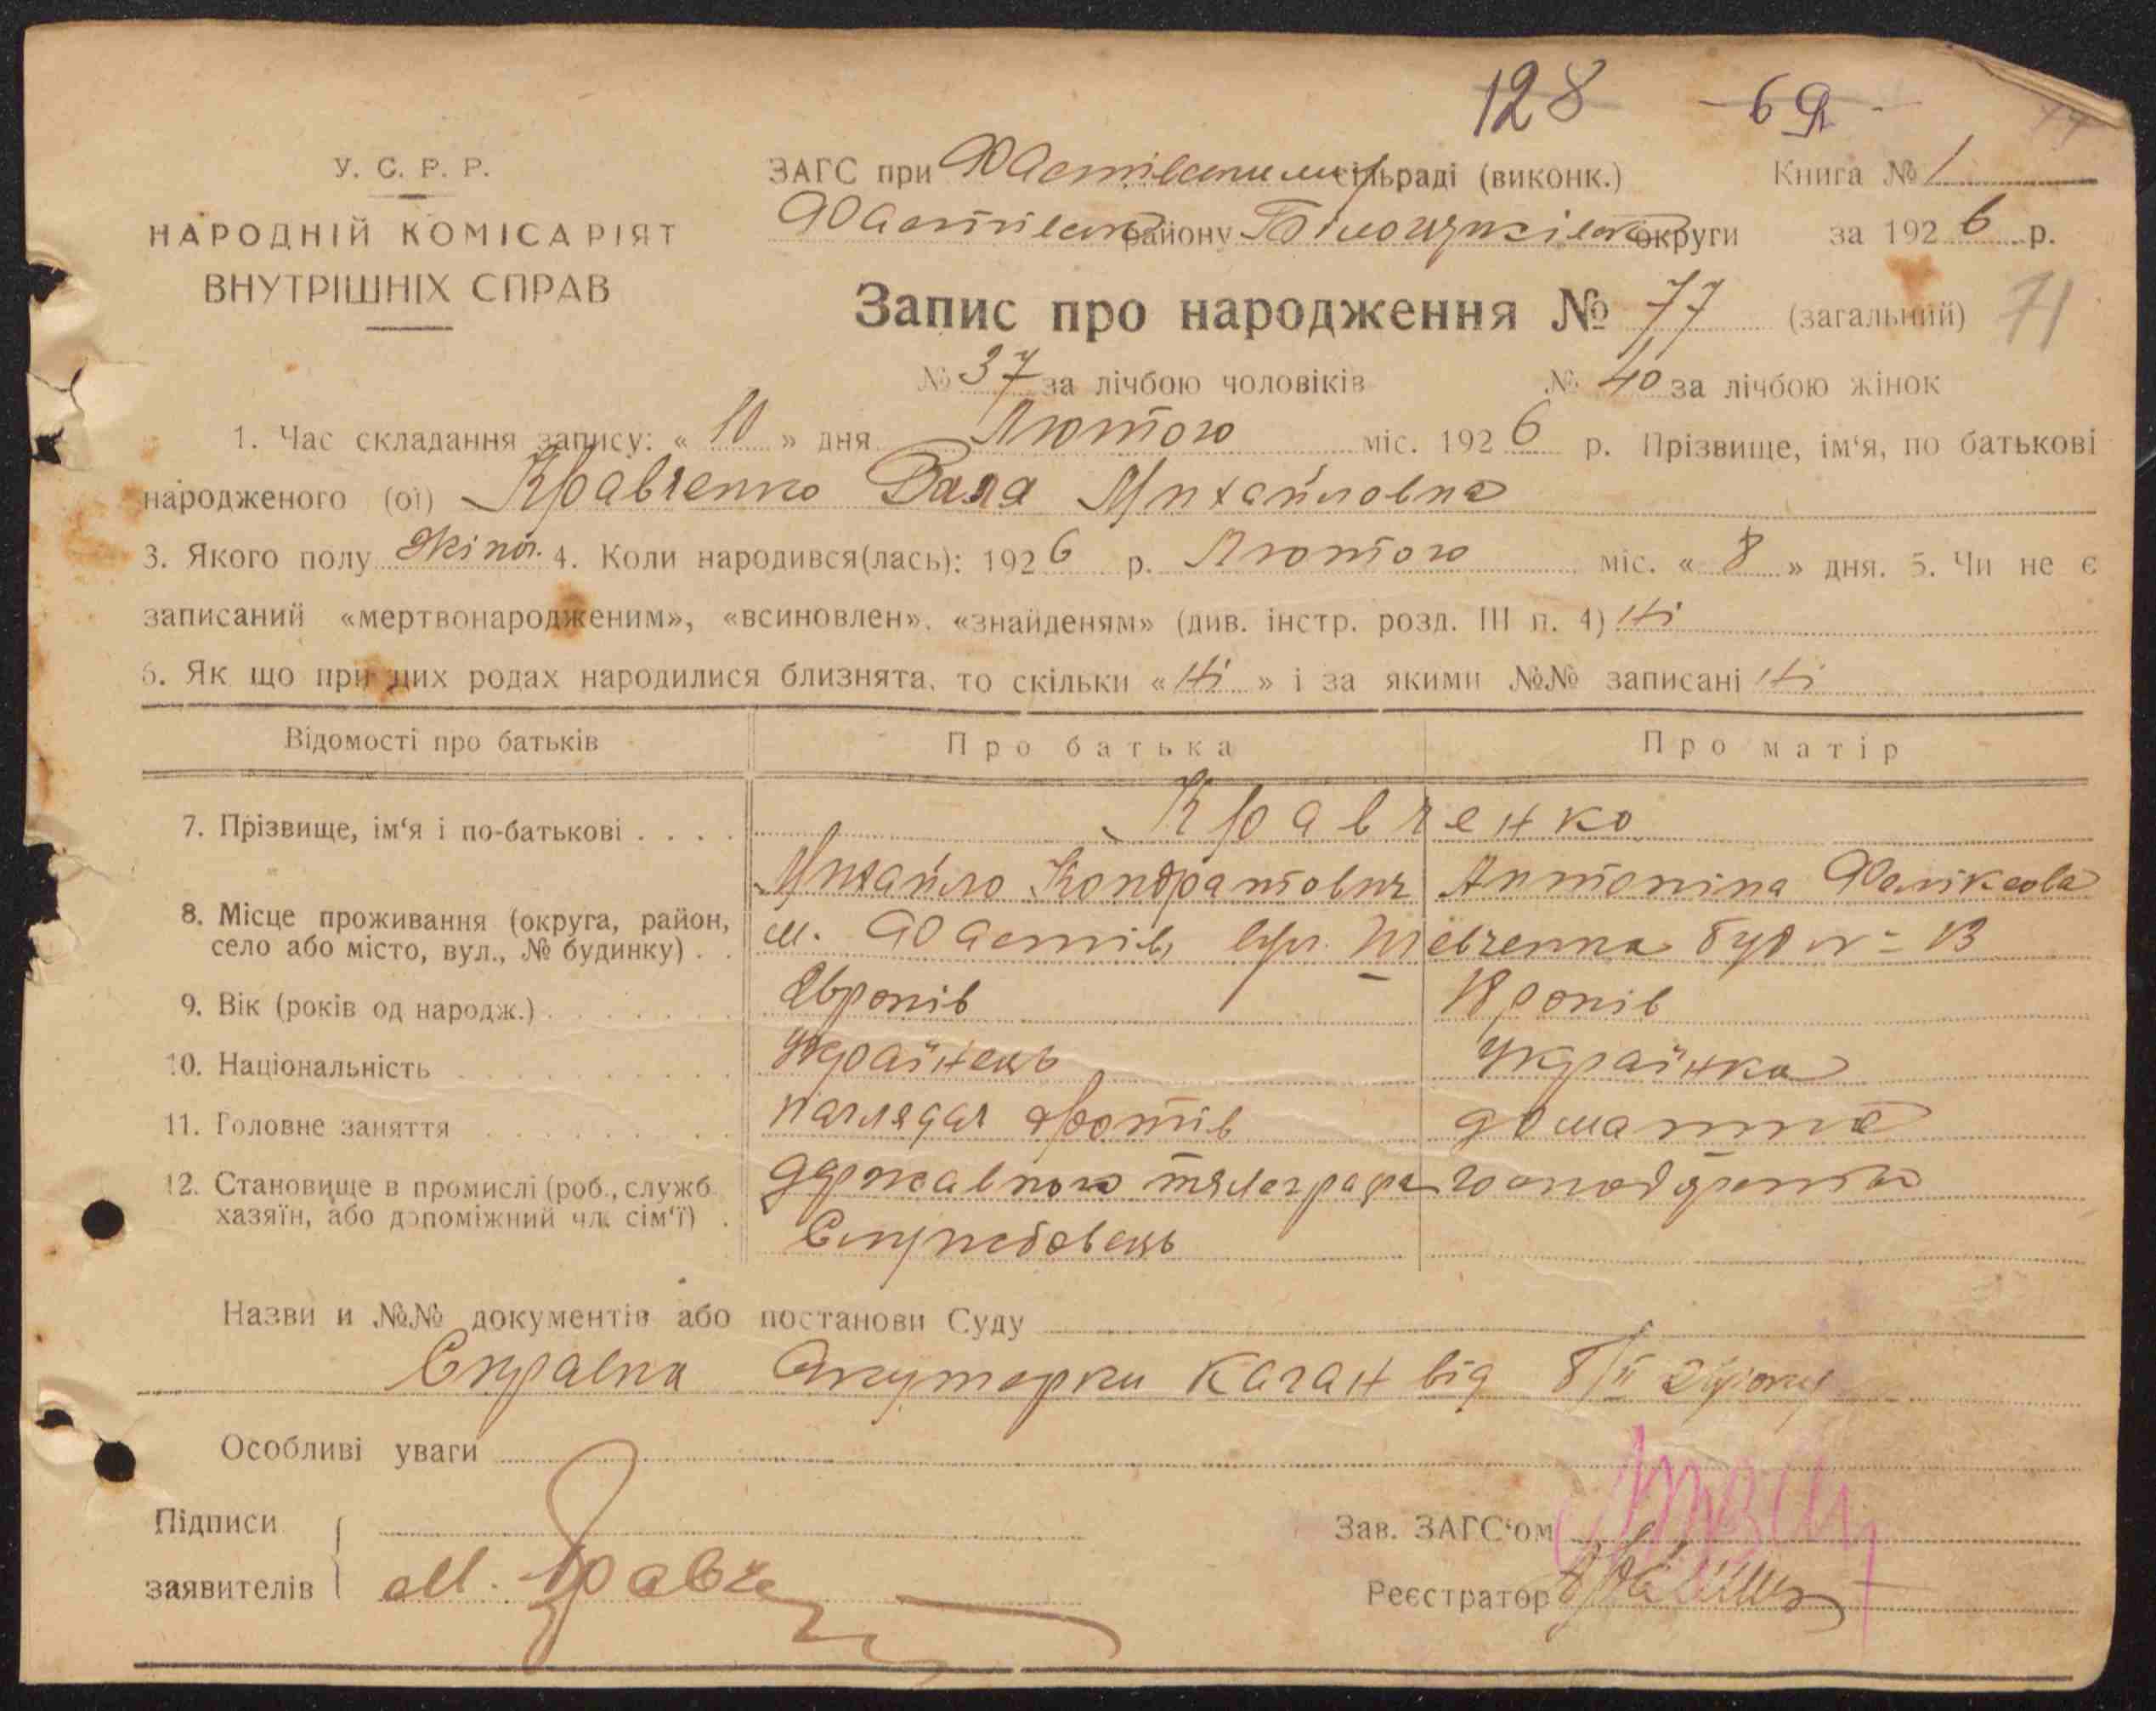 128 69
У. С. Р. Р.
ЗАГС при Фастівськім сільраді (виконк.) Книга № 1
НАРОДНІЙ КОМІСАРІЯТ
Фастівськ району Білоцерківськ округи за 192 6 р.
ВНУТРІШНІХ СПРАВ
Запис про народження № 77 (загальний) 71
№ 37 за лічбою чоловіків № 40 за лічбою жінок
1. Час складання запису: « 10 » дня Лютого міс. 192 6 р. Прізвище, ім‘я, по батькові
народженого (ої) Кравченко Вала Михайловна
3. Якого полу жіноч. 4. Коли народився(лась): 192 6 р. Лютого міс. « 8 » дня. 5. Чи не є
записаний «мертвонародженим», «всиновлен», «знайденям» (див. інстр. розд. III п. 4) Ні
6. Як що при цих родах народилися близнята, то скільки « Ні » і за якими №№ записані Ні
Відомості про батьків Про батька Про матір
7. Прізвище, ім‘я і по-батькові . . . . Кравченко
Михайло Кондратович Антоніна Феліксова
8. Місце проживання (округа, район, село або місто, вул., № будинку) . . м. Фастів вул. Шевченка буд № 13
9. Вік (років од народж.) років 18 років
10. Національність Українець Українка
11. Головне заняття наглядач дротів домашнє
12. Становище в промислі (роб., служб. хазяїн, або допоміжний чл. сім‘ї) . державного телеграфа господарство
Службовець
Назви и №№ документів або постанови Суду
Справка Акушорки Каган від 8/II 26 року
Особливі уваги
Підписи
Зав. ЗАГС‘ом
заявителів М. Кравче
Реєстратор